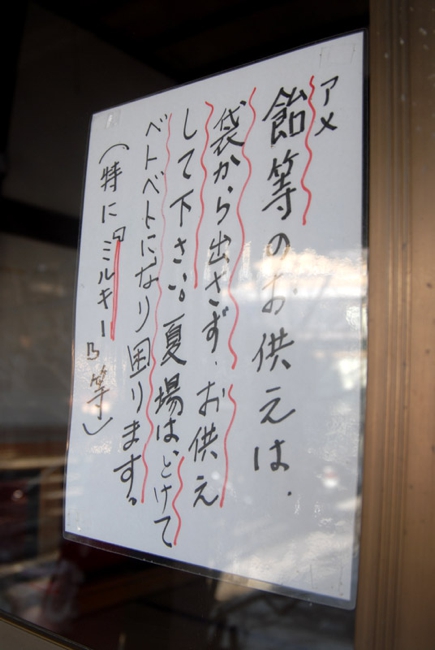 アメ
飴等のお供えは、
袋から出さず、お供え
して下さい。夏場は、とけて
ベトベトになり困ります。
(特に『ミルキー』等)